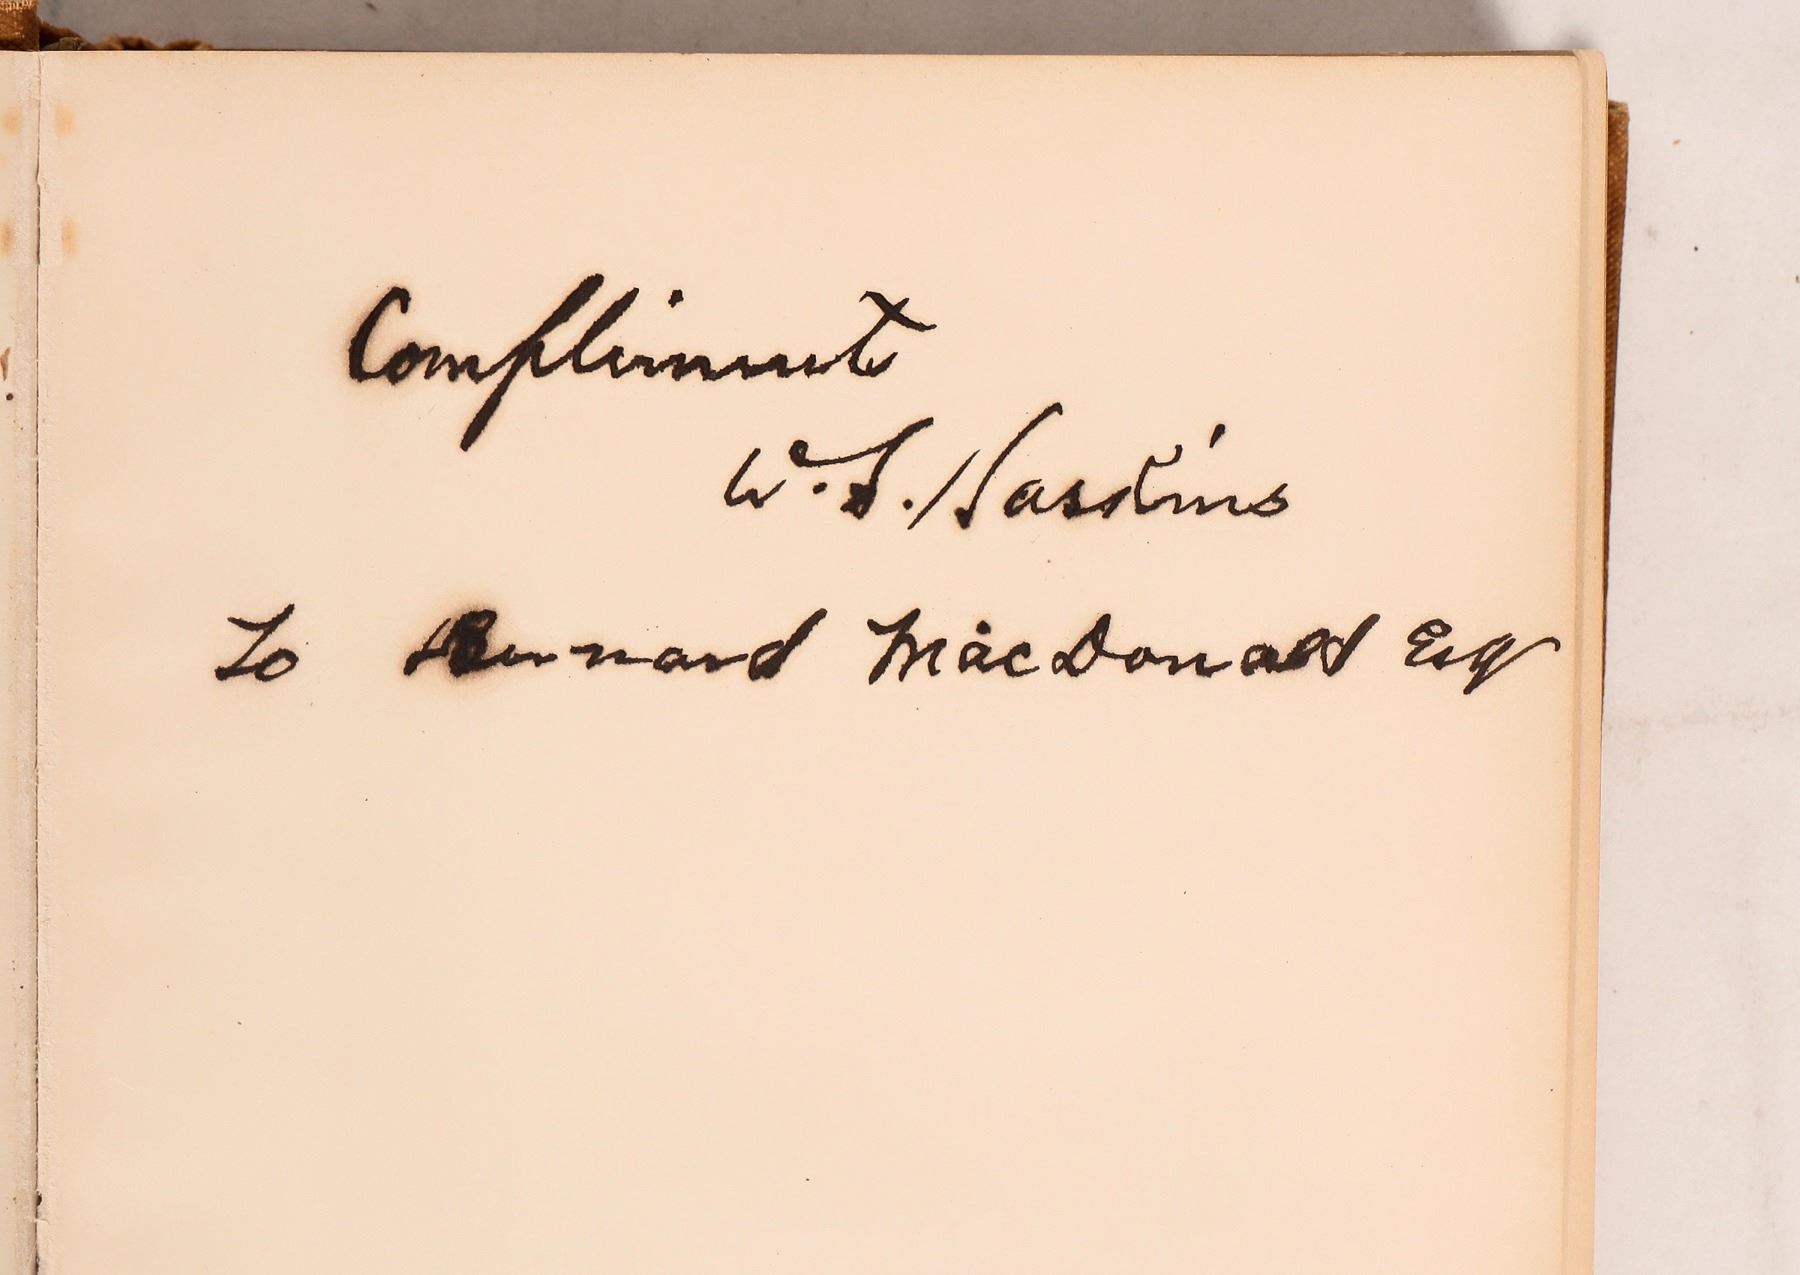 Compliments
W. S. Haskins
To Bernard MacDonald Esq